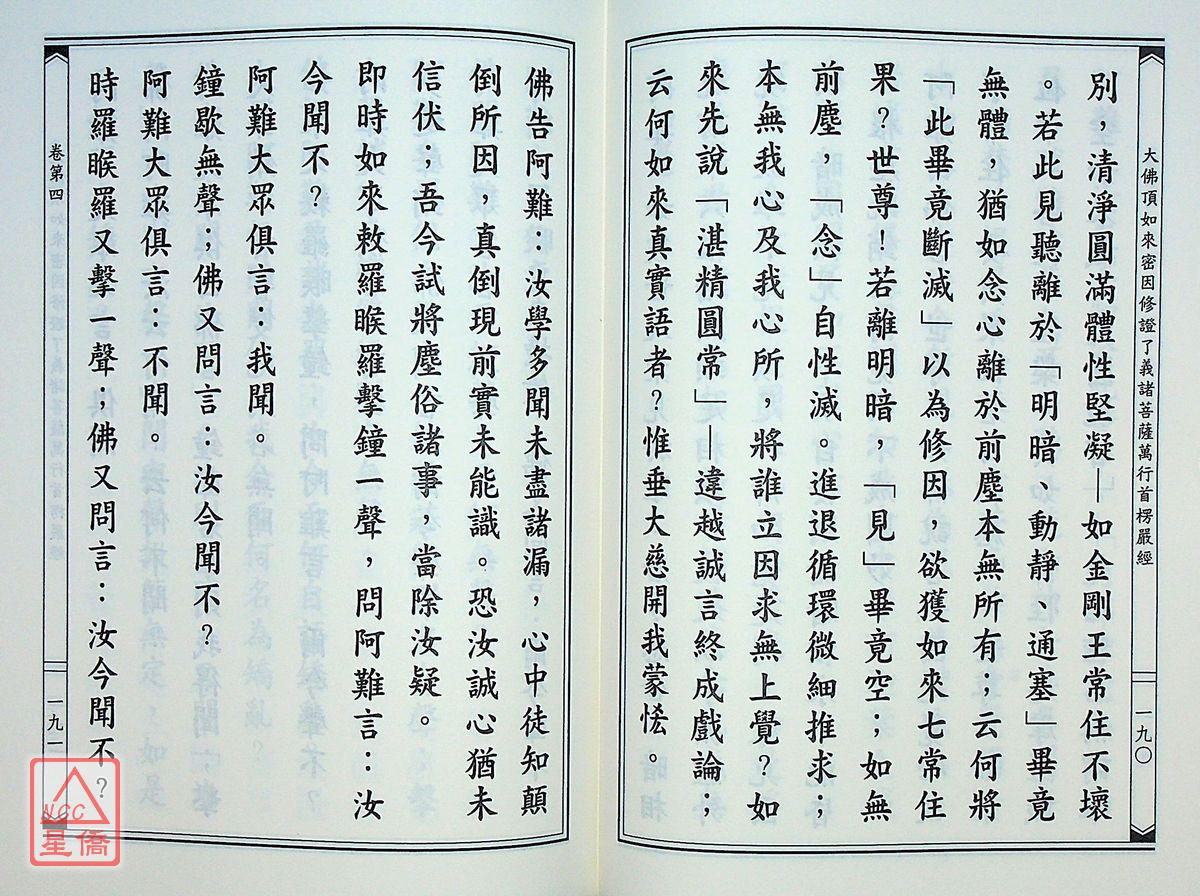 大佛頂如來密因修證了義諸菩薩萬行首楞嚴經
一九〇
別，清淨圓滿體性堅凝—如金剛王常住不壞
。若此見聽離於「明暗、動靜、通塞」畢竟
無體，猶如念心離於前塵本無所有；云何將
「此畢竟斷滅」以為修因，欲獲如來七常住
果？世尊！若離明暗，「見」畢竟空；如無
前塵，「念」自性滅。進退循環微細推求；
本無我心及我心所，將誰立因求無上覺？如
來先說「湛精圓常」—違越誠言終成戲論；
云何如來真實語者？惟垂大慈開我蒙恡。
佛告阿難：汝學多聞未盡諸漏，心中徒知顛
倒所因，真倒現前實未能識。恐汝誠心猶未
信伏；吾今試將塵俗諸事，當除汝疑。
即時如來敕羅睺羅擊鐘一聲，問阿難言：汝
今聞不？
阿難大眾俱言：我聞。
鐘歇無聲；佛又問言：汝今聞不？
阿難大眾俱言：不聞。
時羅睺羅又擊一聲；佛又問言：汝今聞不？
卷第四
一九一
NCC
星僑